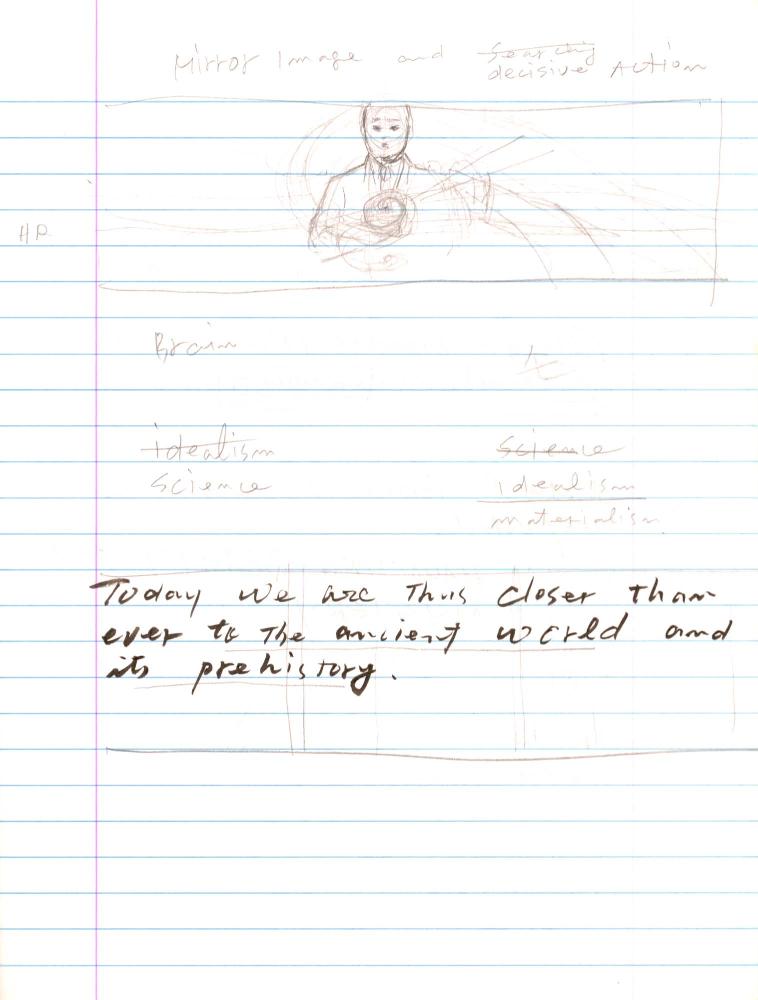 Mirror Image and searching
decisive Action
HP
Brain
idealism science
science idealism
materialism
Today we are thus closer than
ever to the ancient world and
its prehistory.